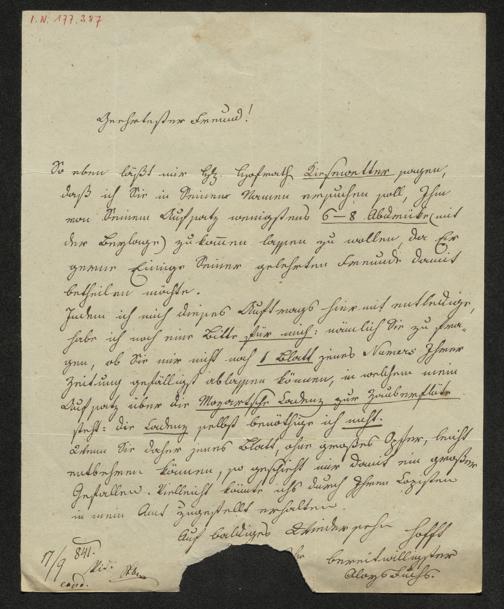 I. N. 177.387
Geehrtester Freund!
So eben läßt mir Hr. Hofrath Kiesewetter sagen,
daß ich Sie in Seinem Namen ersuchen soll, Ihm
von Seinem Aufsatz wenigstens 6–8 Abdrücke (mit
der Beylage) zukommen lassen zu wollen, da Er
gerne Einige Seiner gelehrten Freunde damit
betheilen möchte.
Indem ich mich dieses Auftrags hiermit entledige,
habe ich noch eine Bitte für mich: nämlich Sie zu fra-
gen, ob Sie mir nicht noch 1 Blatt jenes Numers Ihrer
Zeitung gefälligst ablassen können, in welchem mein
Aufsatz über die Mozartsche Cadenz zur Zauberflöte
steht: die Cadenz selbst benöthige ich nicht.
Wenn Sie daher jenes Blatt, ohne großes Opfer, leicht
entbehren können, so geschieht mir damit ein großer
Gefallen. Vielleicht könnte ichs durch Ihren Copisten
in mein Amt zugestellt erhalten.
Auf baldiges Wiedersehn hofft
Ihr bereitwilligster
Aloys Fuchs.
17/9 841.